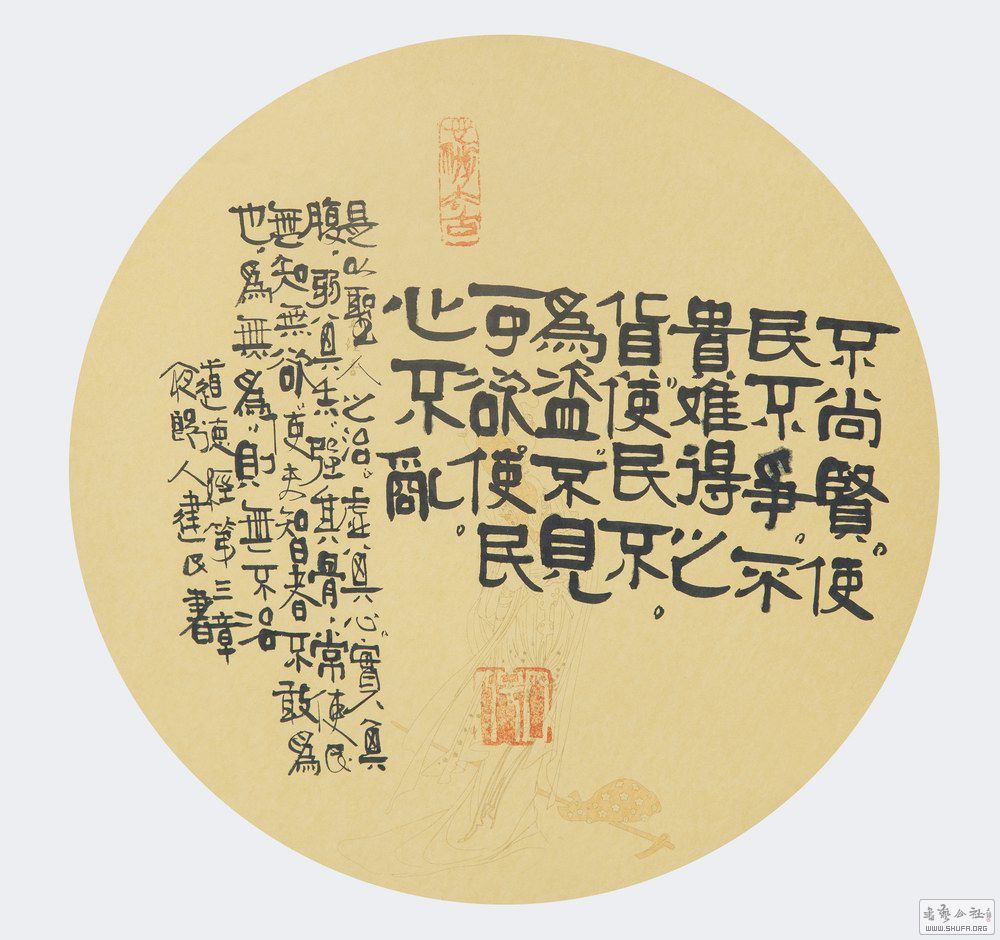 不尚賢。使
民不爭。不
貴難得之
貨使民不。
為盜不見
可欲使民
心不亂。
是以聖人之治。虛其心實其
腹。弱其志。強其骨。常使民
無知無欲。使夫智者不敢為
也。為無為。則無不治
道德經第三章
夜郎人建民書
書藝公社
WWW.SHUFA.ORG